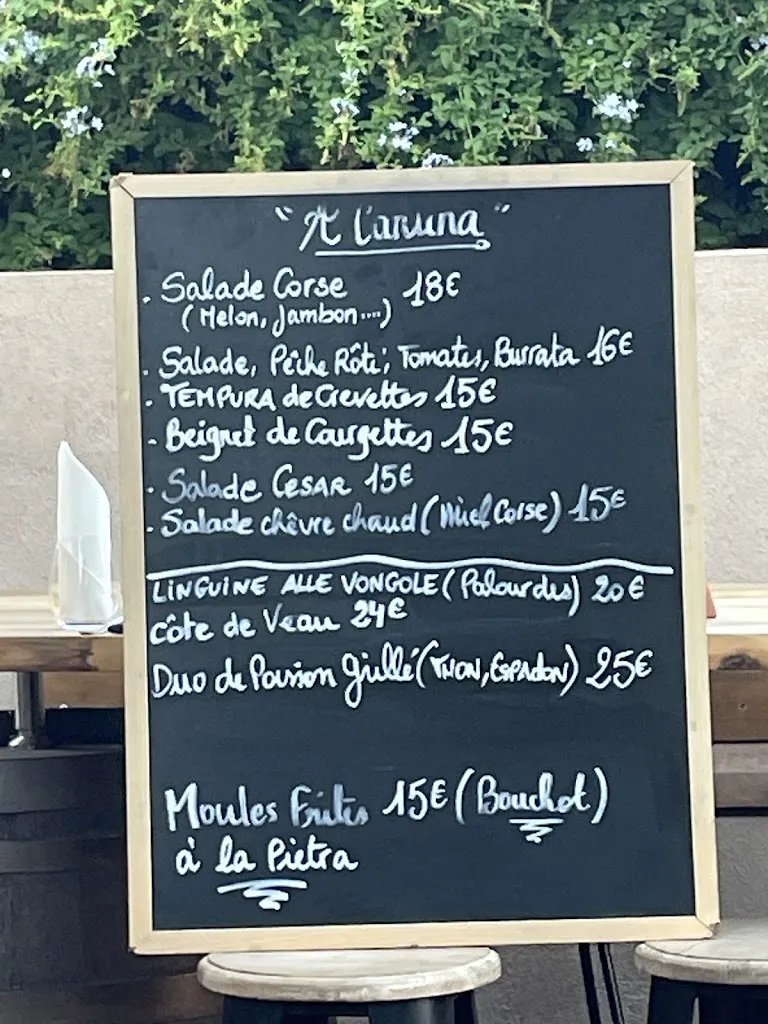 "A Caruna"
. Salade Corse 18€
(Melon, Jambon....)
. Salade, Pêche Rôti, Tomates, Burrata 16€
. TEMPURA de Crevettes 15€
. Beignet de Courgettes 15€
. Salade CESAR 15€
. Salade chêvre chaud (Miel Corse) 15€
LINGUINE ALLE VONGOLE (Palourdes) 20€
côte de Veau 24€
Duo de Poisson grillé (THON, ESPADON) 25€
Moules Frites 15€ (Bouchot)
à la Pietra